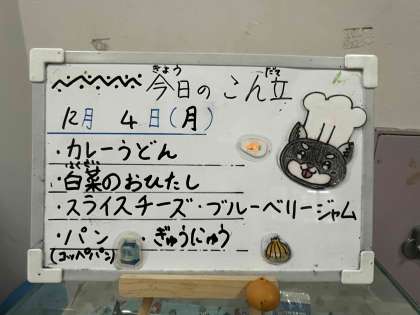 きょう だて
今日のこん立
12月 4日(月)
・カレーうどん
はくさい
・白菜のおひたし
・スライスチーズ・ブルーベリージャム
・パン ・ぎゅうにゅう
(コッペパン)